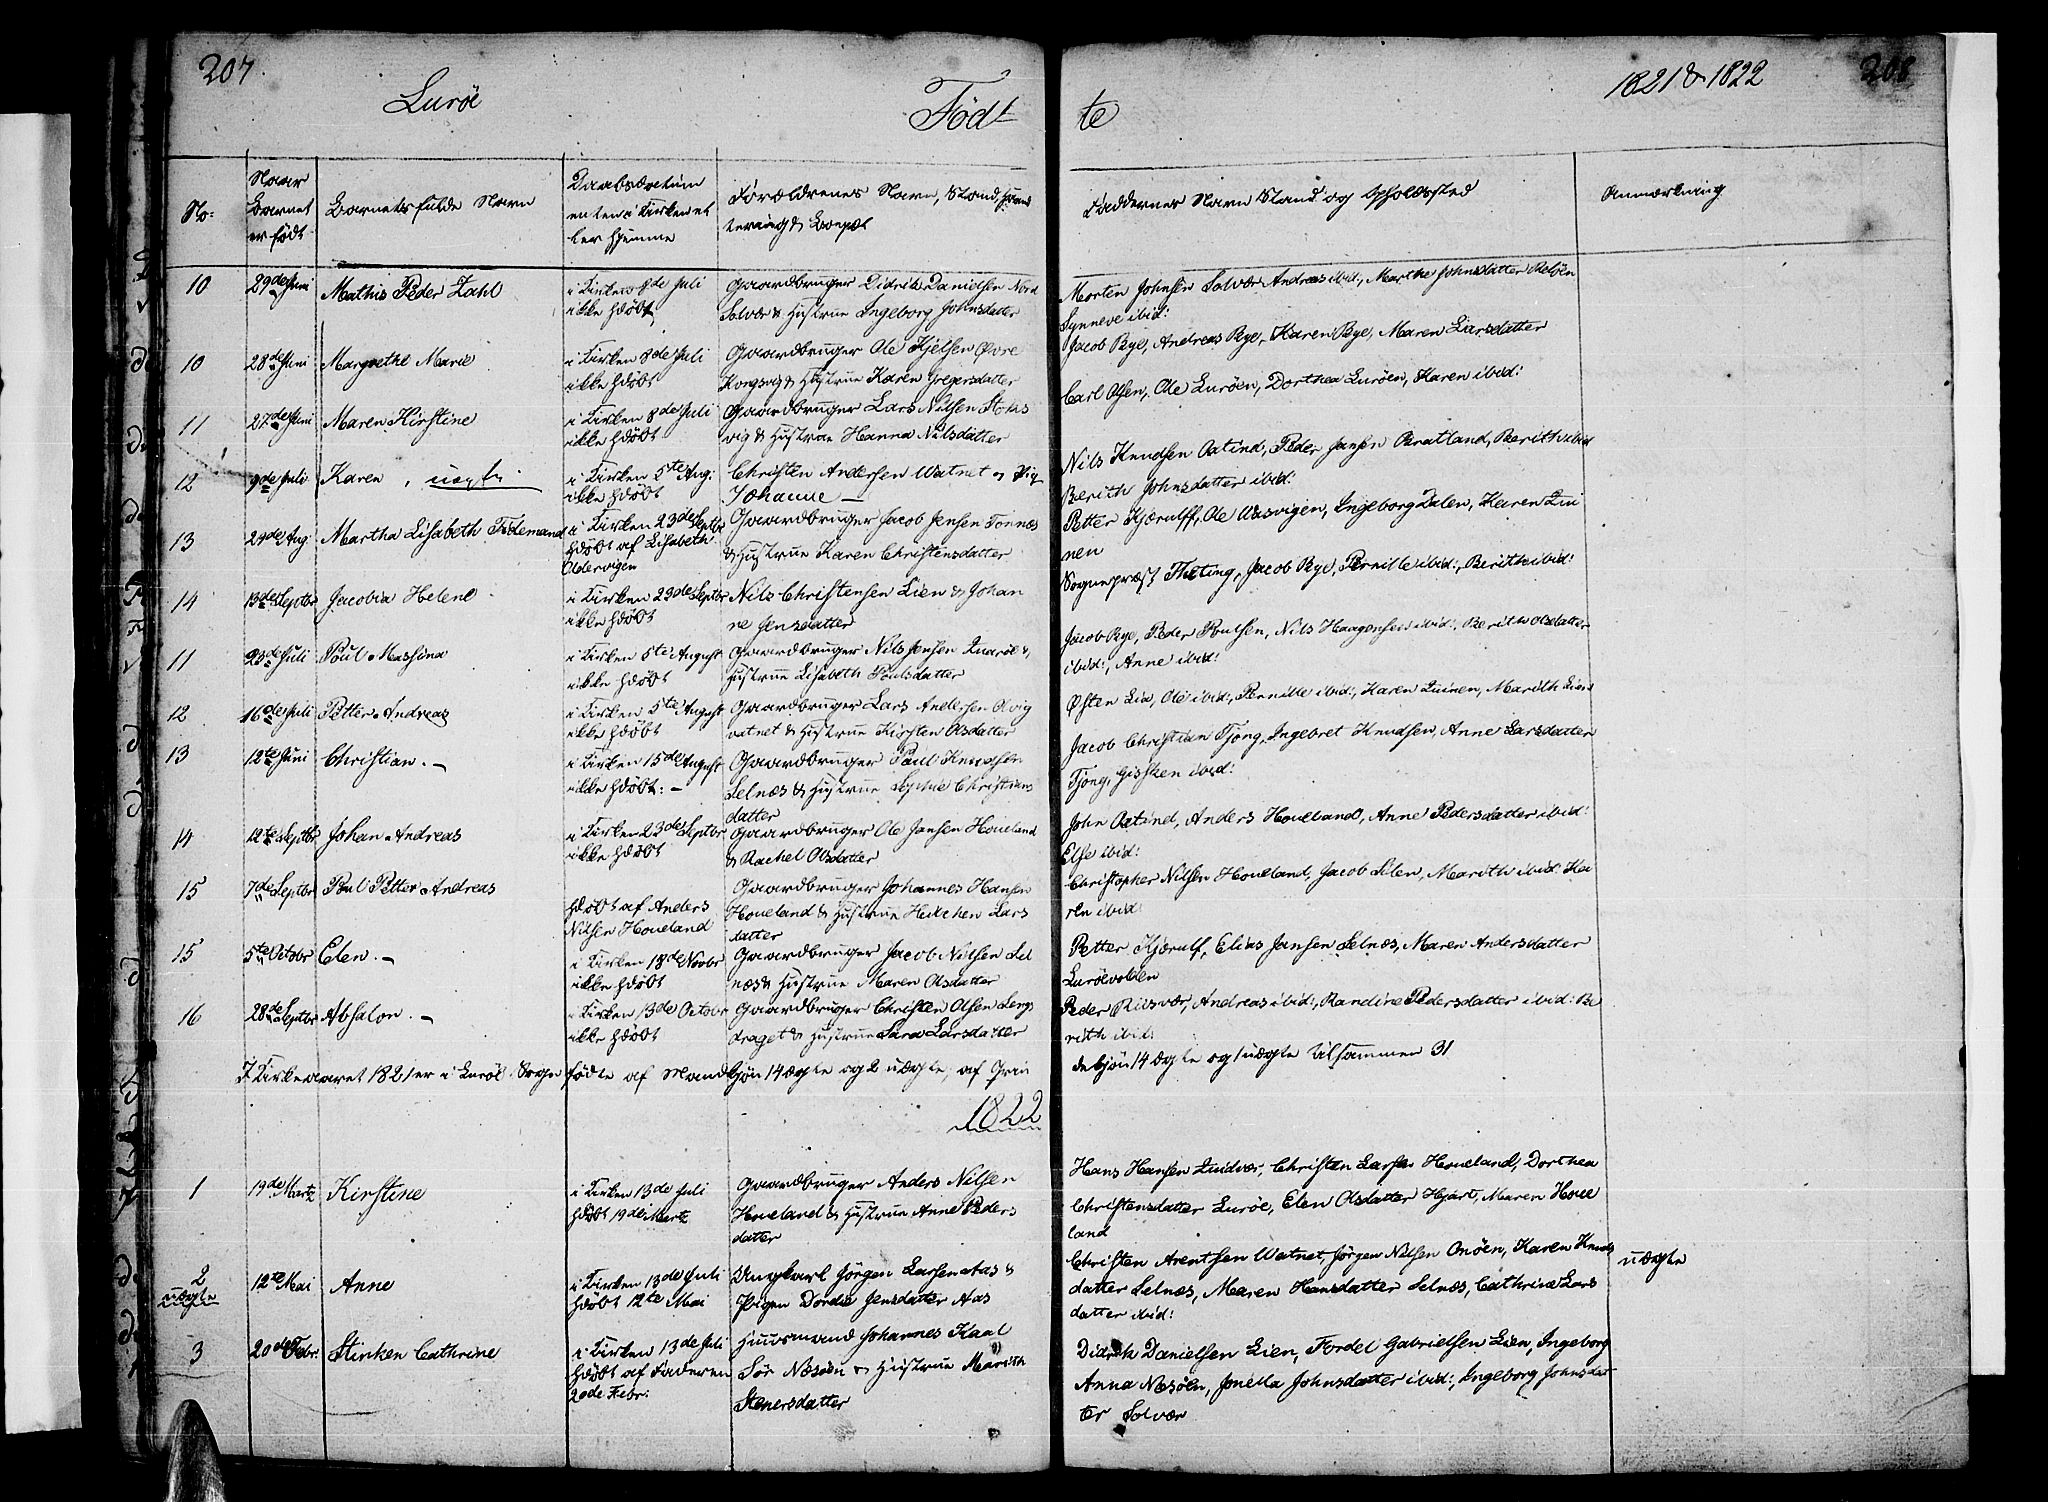 207.
Lurøe
Født
te
1821 & 1822
208
No:
Naar
Barnet
er født
Barnets fulde Navn
Daabsdatum
enten i Kirken el
ler hjemme
Forældrenes Navn, Stand, Haand
tering & Bopæl
Faddernes Navn Stand og Opholdssted
Anmærkning
10
29de Juni
Mathis Peder Zahl
i Kirken 8de Juli
ikke hdøbt
Gaardbruger Didrik Danielsen Nord
Solvær & Hustrue Ingeborg Johnsdatter
Morten Johnsen Solvær Andreas ibid:, Marthe Johnsdatter
Synneve ibid:
10
28de Juni
Margrethe Marie
i Kirken 8de Juli
ikke hdøbt
Gaardbruger Ole Kjelsen Øvre
Kongsvig & Hustrue Karen Gregersdatter
Jacob Bye, Andreas Bye, Karen Bye, Maren Larsdatter
11
27de Juni
Maren Kirstine
i Kirken 8de Juli
ikke hdøbt
Gaardbruger Lars Nilsen Stoks
vig & Hustrue Hanna Nilsdatter
Carl Olsen, Ole Lurøen, Dorthea Lurøen, Karen ibid:
12
9de Juli
Karen, uægte
i Kirken 5te Aug:
ikke hdøbt
Christen Andersen Watnet & Pig
Johanne —
Nils Knudsen Oxtind, Peder Jansen Bratland, Berith ibid
Berith Johnsdatter ibid:
13
24de Aug.
Martha Lisabeth Tidemand
i Kirken 23de Septbr
hdøbt af Lisabeth
Aldervigen
Gaardbruger Jacob Jensen Tonnes
& Hustrue Karen Christensdatter
Petter Kjærulff, Ole Wasvigen, Ingeborg Dalen, Karen Qui
nen
14
13de Septbr
Jacobia Helene
i Kirken 23de Septbr
ikke hdøbt
Nils Christensen Lien & Johan
ne Jensdatter
Sognepræst Theting, Jacob Bye, Pernille ibid:, Berith ibid:
11
23de Juli
Poul Messina
i Kirken 5te August
ikke hdøbt
Gaardbruger Nils Jensen Quarøe &
Hustrue Lisabeth Poulsdatter
Jacob Bye, Peder Poulsen, Nils Haagensen ibid:, Berith Olsdatter
ibid:, Anne ibid:
12
16de Juli
Petter Andreas
i Kirken 5te August
ikke hdøbt
Gaardbruger Lars Andersen Olvig
vatnet & Hustrue Kirsten Olsdatter
Østen Lie, Ole ibid:, Pernille ibid:, Karen Quinen, Marith Lien
13
12te Juni
Christian. —
i Kirken 15de August
ikke hdøbt: —
Gaardbruger Paul Knudsen
Selnæs & Hustrue Sophie Christians
datter
Jacob Christian Tjong, Ingebret Knudsen, Anne Larsdatter
Tjong, Gisken ibid:
14
12te Septbr
Johan Andreas
i Kirken 23de Septbr
ikke hdøbt
Gaardbruger Ole Jansen Houeland
& Rachel Olsdatter
John Oxtind, Anders Houeland, Anne Pedersdatter ibid:
Else ibid:
15
7de Septbr
Poul Petter Andreas
hdøbt af Anders
Nilsen Houeland
Gaardbruger Johannes Hansen
Houeland & Hustrue Lars
datter
Christopher Nilsen Houeland, Jacob Silen, Marith ibid: Ka
ren ibid:
15
5te Octobr
Elen. —
i Kirken 18de Novbr
ikke hdøbt
Gaardbruger Jacob Nilsen Sel
næs & Hustrue Maren Olsdatter
Petter Kjærulf, Elias Jansen Selnæs, Maren Andersdatter
Lurøevolden
16
28de Septbr
Absalon. —
i Kirken 13de Octobr
ikke hdøbt
Gaardbruger Christen Olsen Lengs
draget & Hustrue Sara Larsdatter
Peder Riisvær, Andreas ibid:, Randine Pedersdatter ibid: Be
rith ibid:
I Kirkeaaret 1821 er i Lurøe Sogn fødte af Mandkjøn 14 ægte og 2 uægte, af Qvin
dekjøn 14 ægte og 1 uægte tilsammen 31
1822
1
19de Martz
Kirstine
i Kirken 13de Juli
hdøbt 19de Martz
Gaardbruger Anders Nilsen
Houeland & Hustrue Anne Peders
datter
Hans Hansen Quidvær, Christen Larsen Houeland, Dorthea
Christensdatter Lurøe, Elen Olsdatter Hjart, Maren Houe
land
2
uægte
12te Mai
Anne
i Kirken 13de Juli
hdøbt 12te Mai
Ungkarl Jørgen Larsen Aas &
Pigen Dordie Jensdatter Aas
Christen Arentsen Watnet, Jørgen Nilsen Onøen, Karen Knuds
datter Selnæs, Maren Hansdatter Selnæs, Cathrine Lars
datter ibid:
uægte
3
20de Febr:
Stinken Cathrine
i Kirken 13de Juli
hdøbt af Faderen
20de Febr:
Huusmand Johannes Kaal
Sør Nesøen & Hustrue Marith
Stenersdatter
Didrik Danielsen Lien, Fordel Gabrielsen Lien, Ingeborg
Anna Nesøen, Jonetta Johnsdatter ibid:, Ingeborg Johnsdat
ter Solvær